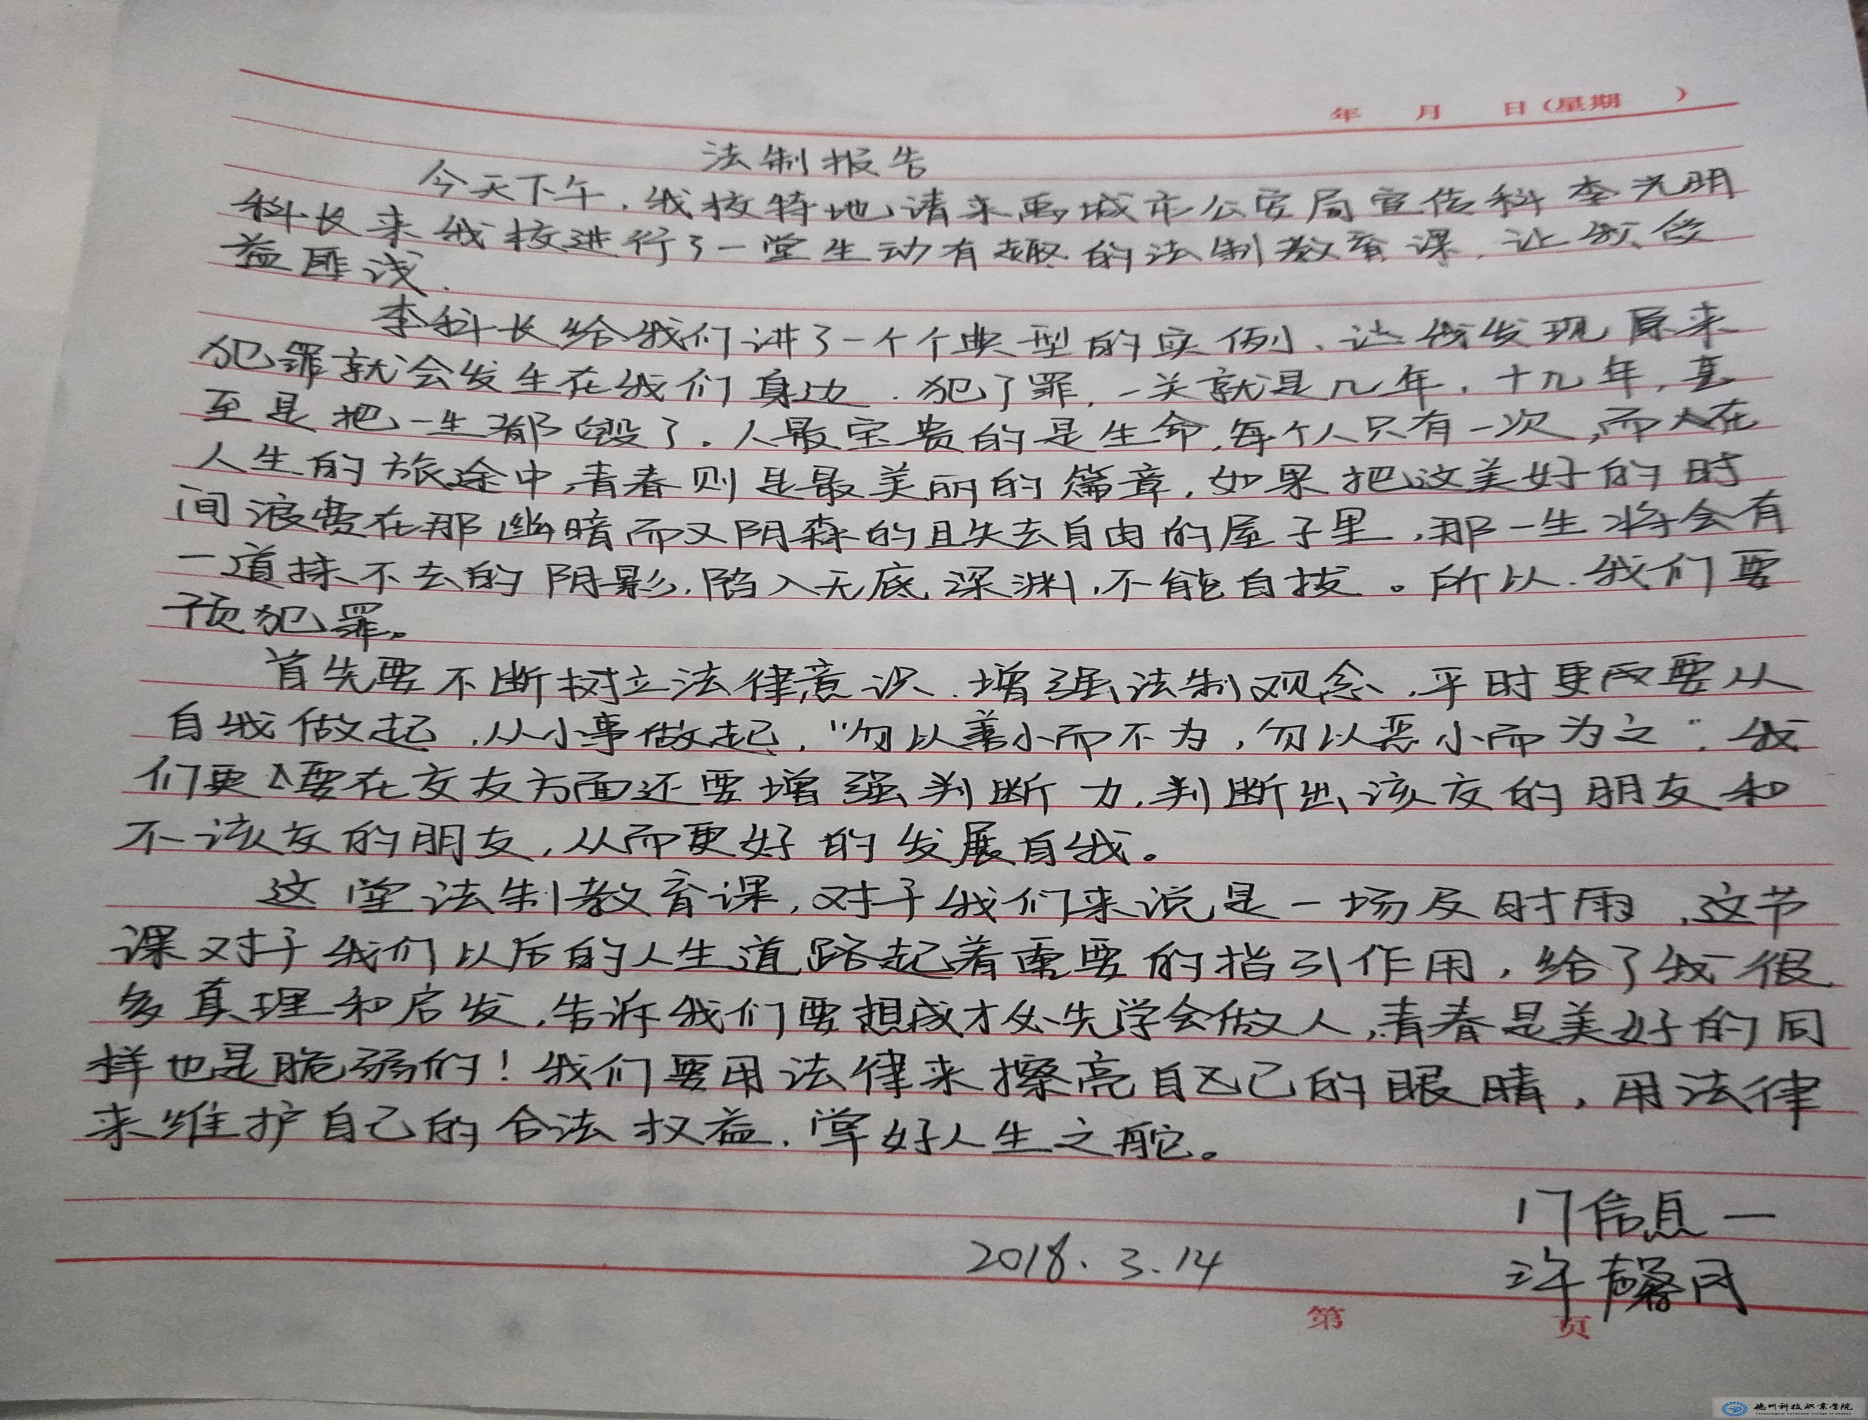 年 月 日(星期 )
法制报告
今天下午,我校特地请来禹城市公安局宣传科李光明
科长来我校进行了一堂生动有趣的法制教育课,让我受
益匪浅.
李科长给我们讲了一个个典型的实例、让我发现原来
犯罪就会发生在我们身边.犯了罪,一关就是几年,十几年,甚
至是把一生都毁了.人最宝贵的是生命,每个人只有一次,而在
人生的旅途中,青春则是最美丽的篇章,如果把这美好的时
间浪费在那幽暗而又阴森的且失去自由的屋子里,那一生将会有
一道抹不去的阴影,陷入无底深渊,不能自拔。所以.我们要
预犯罪。
首先要不断树立法律意识.增强法制观念,平时更要从
自我做起,从小事做起,“勿以善小而不为,勿以恶小而为之”.我
们更要在交友方面还要增强判断力,判断出该交的朋友和
不该交的朋友,从而更好的发展自我。
这堂法制教育课,对于我们来说是一场及时雨,这节
课对于我们以后的人生道路起着重要的指引作用,给了我很
多真理和启发,告诉我们要想成才必先学会做人,青春是美好的同
样也是脆弱的!我们要用法律来擦亮自己的眼睛,用法律
来维护自己的合法权益.掌好人生之舵。
门信息一
2018.3.14
许馨月
第 页
德州科技职业学院